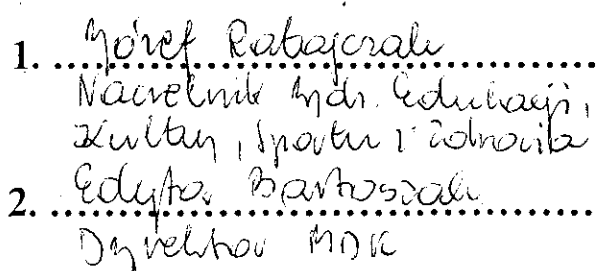 1. Józef Ratajczak
Naczelnik Wydz. Edukacji,
Kultury, Sportu i Zdrowia
2. Edyta Bartoszak
Dyrektor MDK